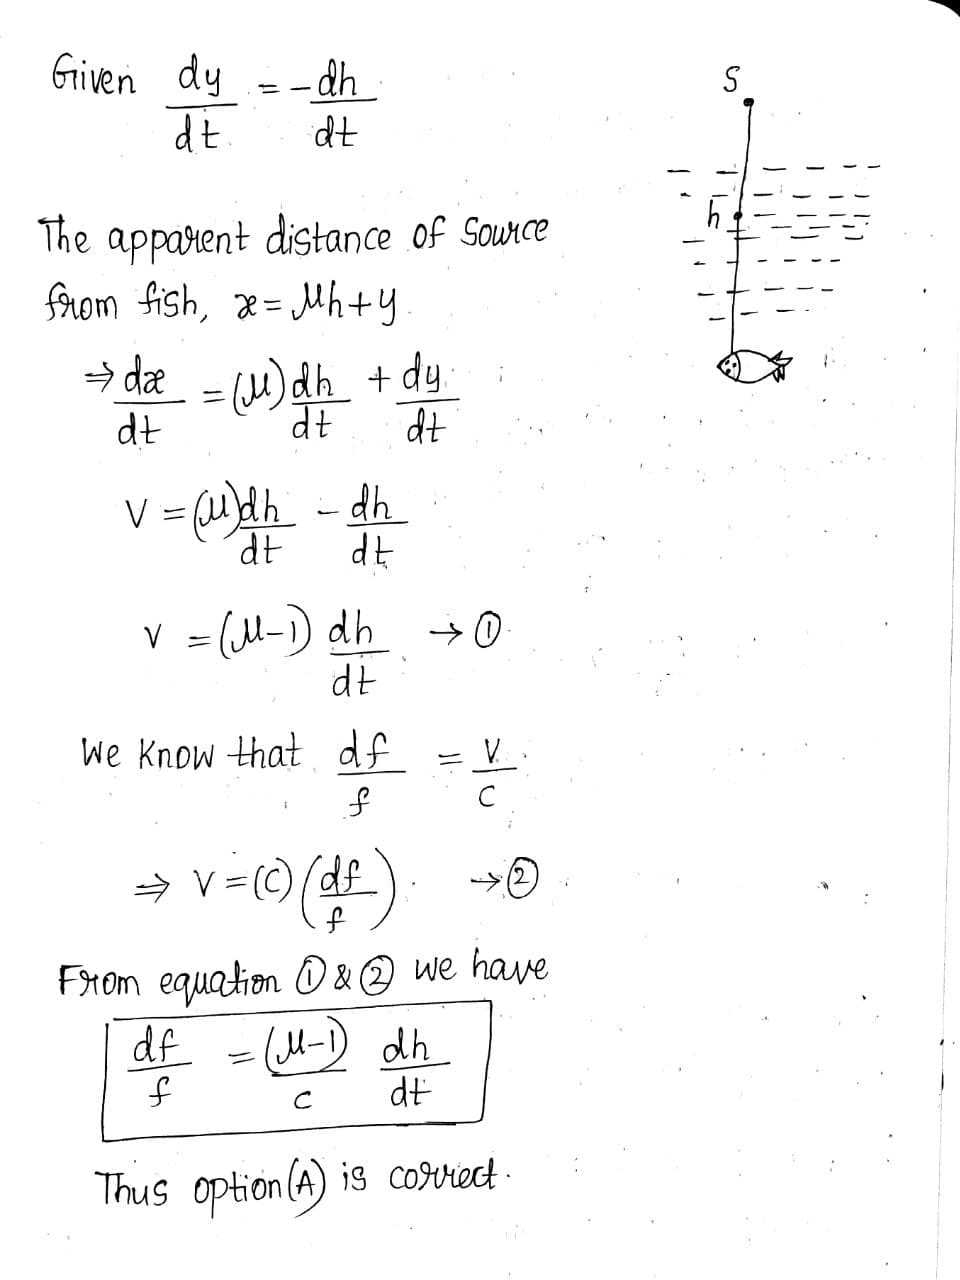 Given dy/dt = -dh/dt
S
h
The apparent distance of Source
from fish, x = μh+y
⇒ dx/dt = (μ) dh/dt + dy/dt
V = (μ)dh/dt - dh/dt
V = (μ-1) dh/dt → ①
We Know that df/f = V/C
⇒ V = (C) (df/f) → ②
From equation ① & ② we have
df/f = (μ-1)/c dh/dt
Thus option (A) is correct.